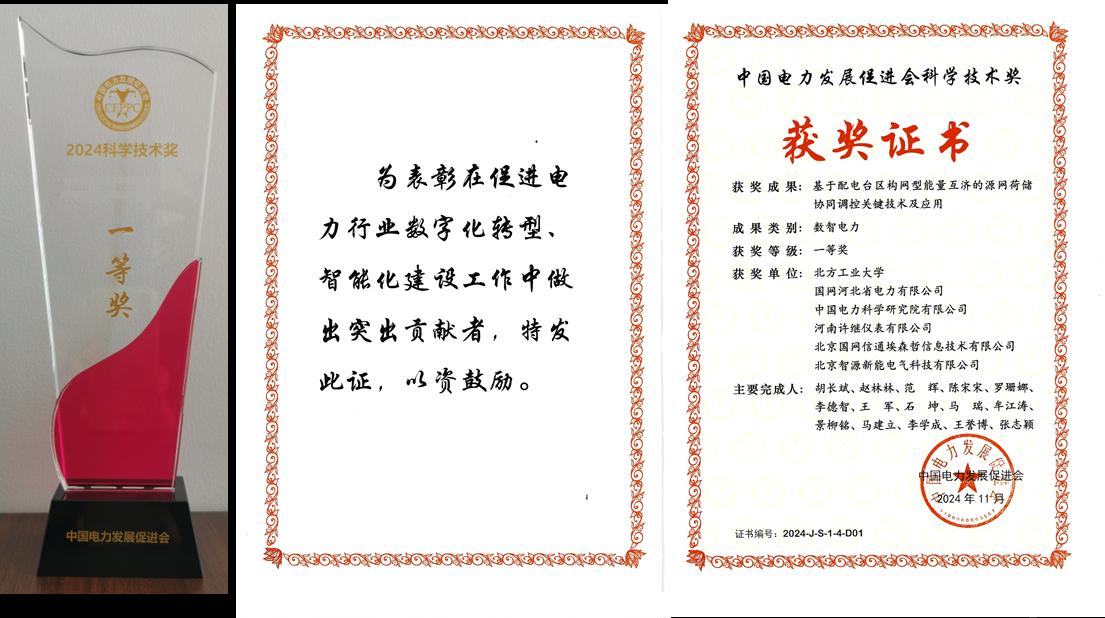 CEPPC
2024科学技术奖
一
等
奖
中国电力发展促进会
为表彰在促进电
力行业数字化转型、
智能化建设工作中做
出突出贡献者，特发
此证，以资鼓励。
中国电力发展促进会科学技术奖
获奖证书
获奖成果：基于配电台区构网型能量互济的源网荷储
协同调控关键技术及应用
成果类别：数智电力
获奖等级：一等奖
获奖单位：北方工业大学
国网河北省电力有限公司
中国电力科学研究院有限公司
河南许继仪表有限公司
北京国网信通埃森哲信息技术有限公司
北京智源新能电气科技有限公司
主要完成人：胡长斌、赵林林、范　辉、陈宋宋、罗珊娜、
李德智、王　军、石　坤、马　瑞、牟江涛、
景柳铭、马建立、李学成、王誉博、张志颖
中国电力发展促进会
2024年11月
证书编号：2024-J-S-1-4-D01